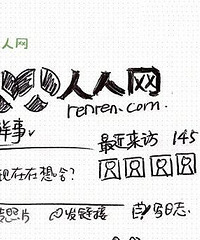 人人网
人人网
renren.com.
鲜事
最近来访 145
现在在想啥？
发链接 写日志.